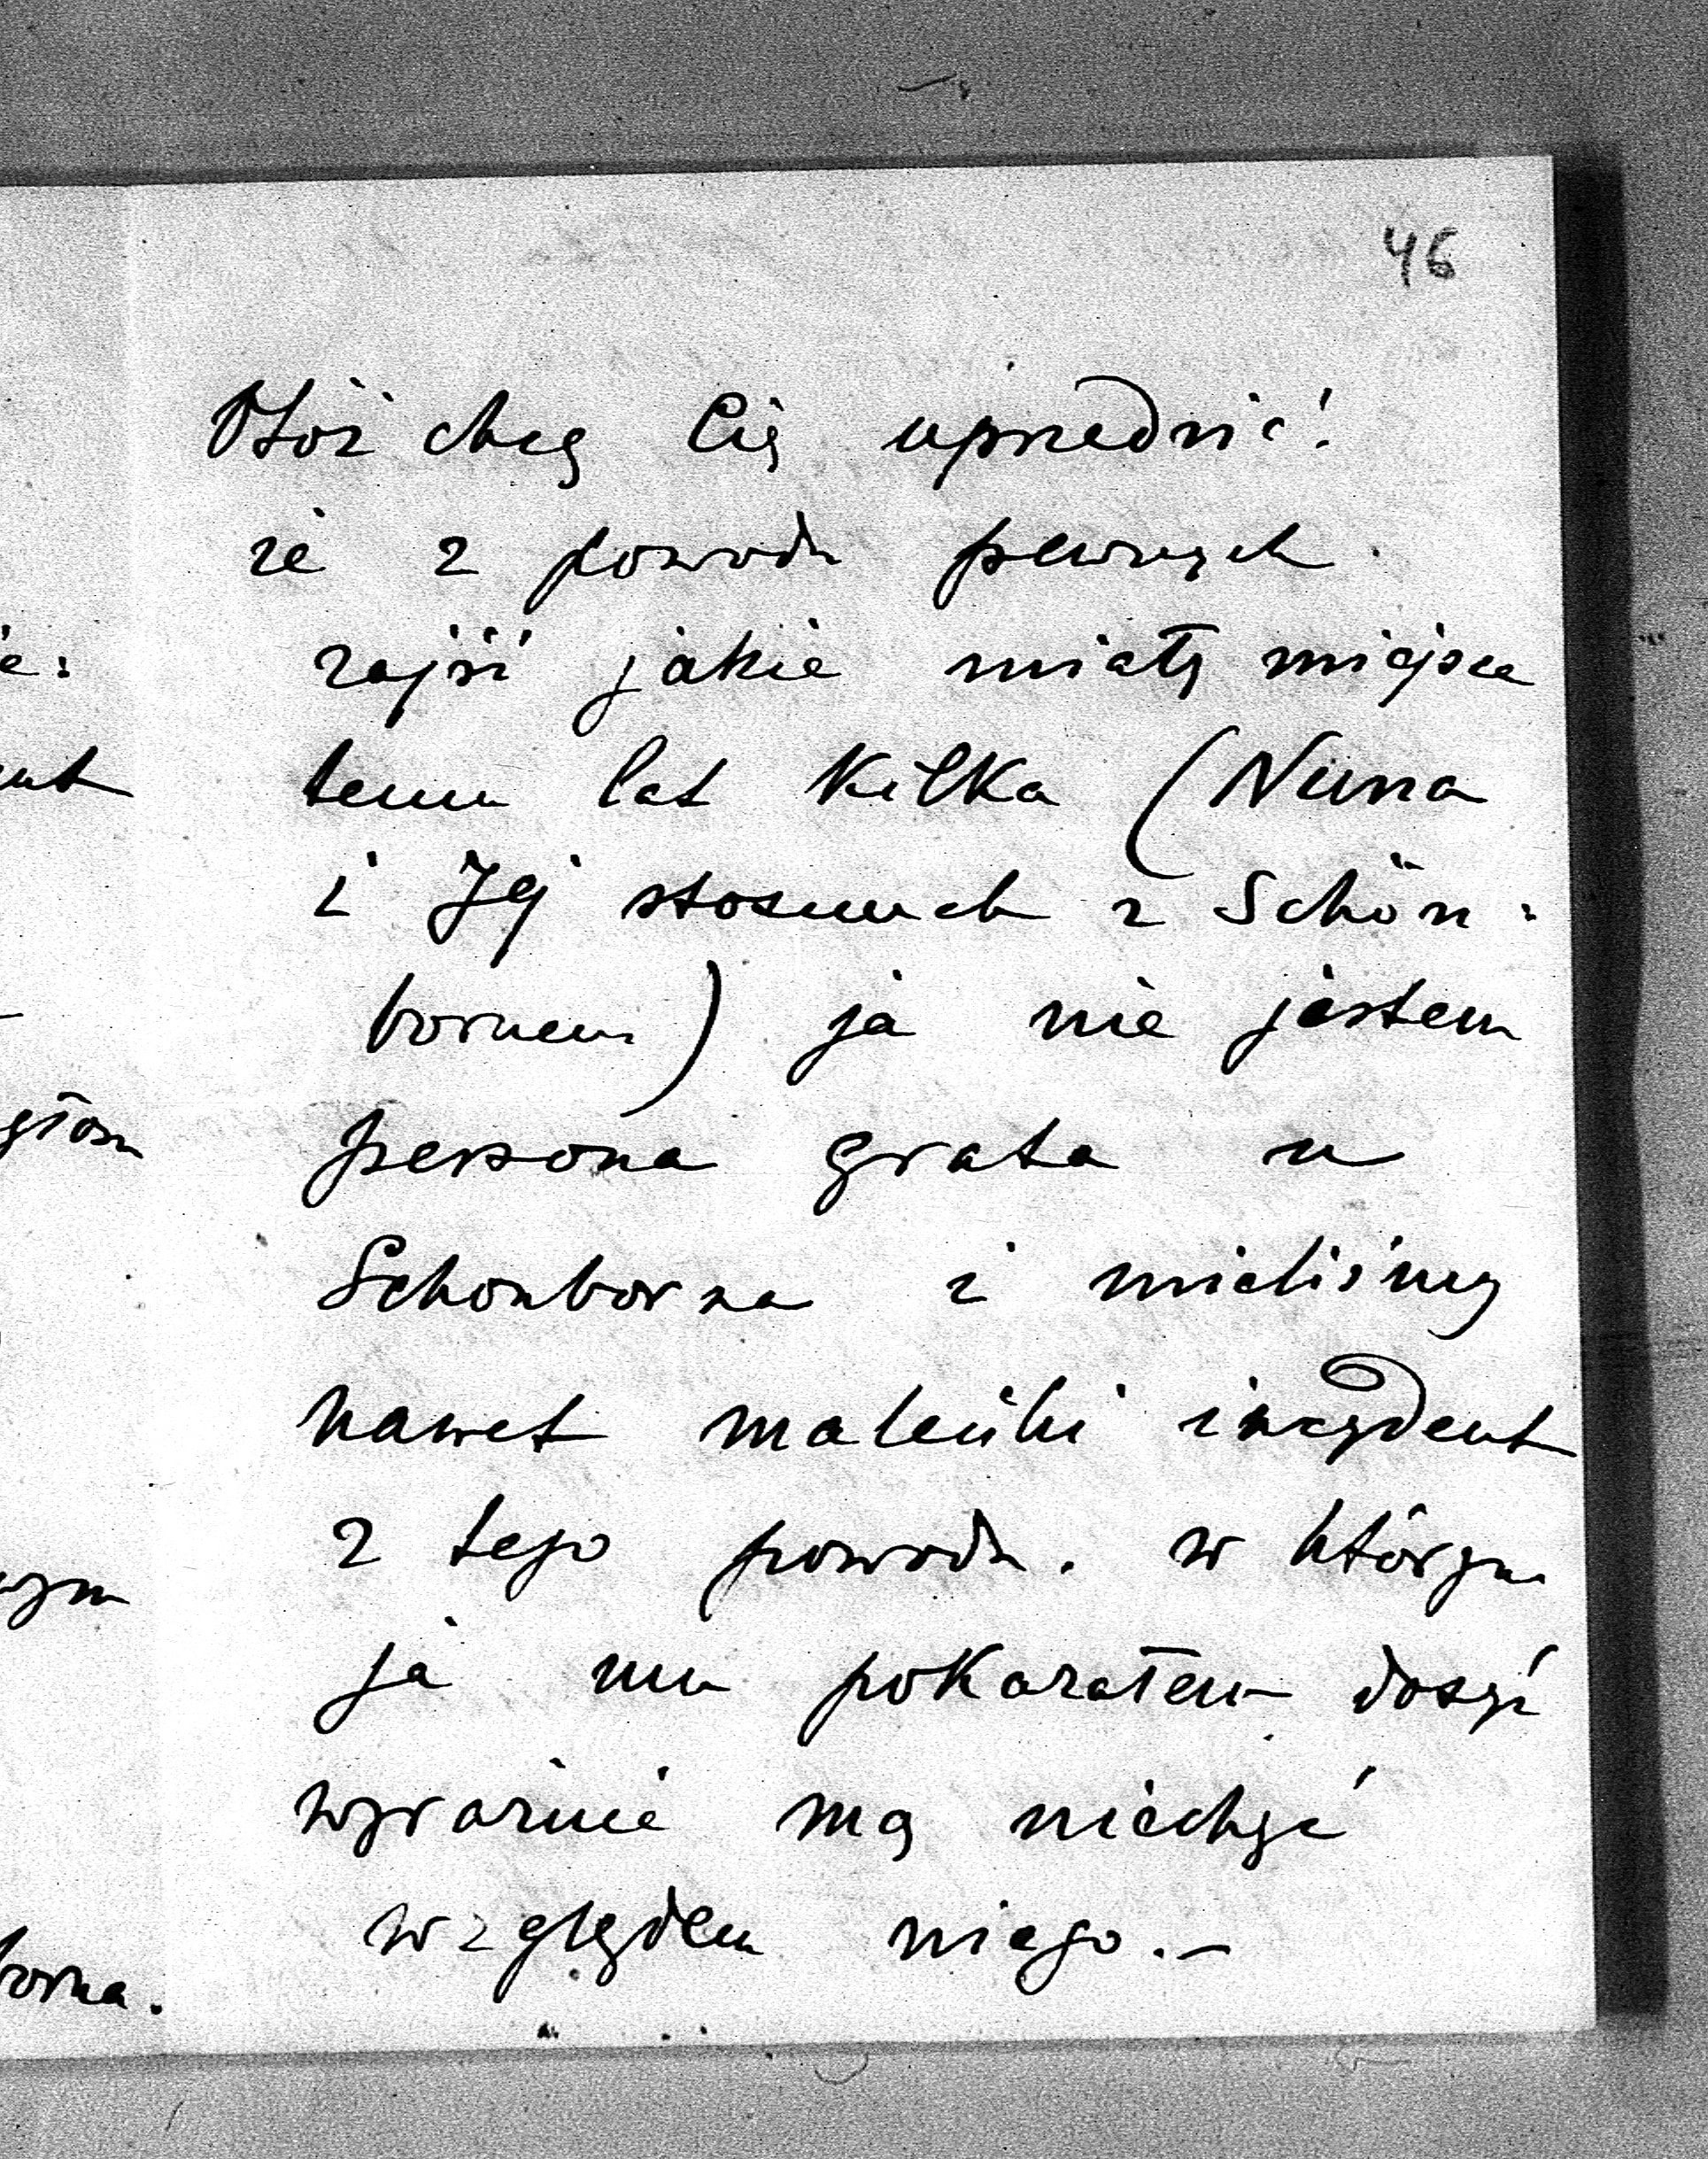 46
Otóż chcę Cię uprzedzić!
że z powodu pewnych
zajść jakie miały miejsce
temu lat kilka (Niuna
i Jej stosunek z Schön=
bornem) ja nie jestem
persona grata u
Schonborna i mieliśmy
nawet maleńki incydent
z tego powodu. w którym
ja mu pokazałem dosyć
wyraźnie mą niechęć
względem niego.—
borna.